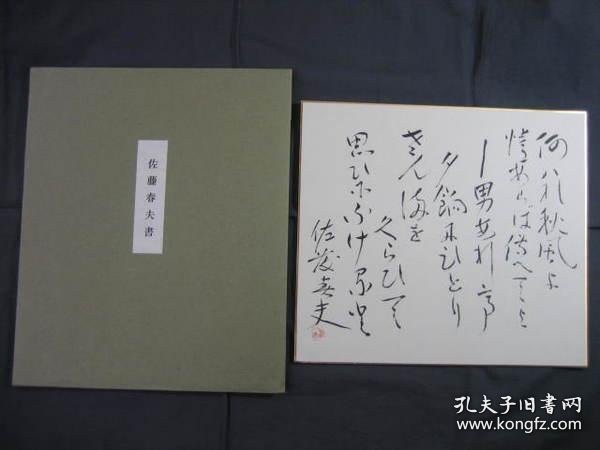 佐藤春夫書
あハれ秋風よ
情あらば傳へてよ
―男ありて
夕餉にひとり
さんまを
くらひて
思ひにふけると
佐藤春夫
孔夫子旧书网
www.kongfz.com